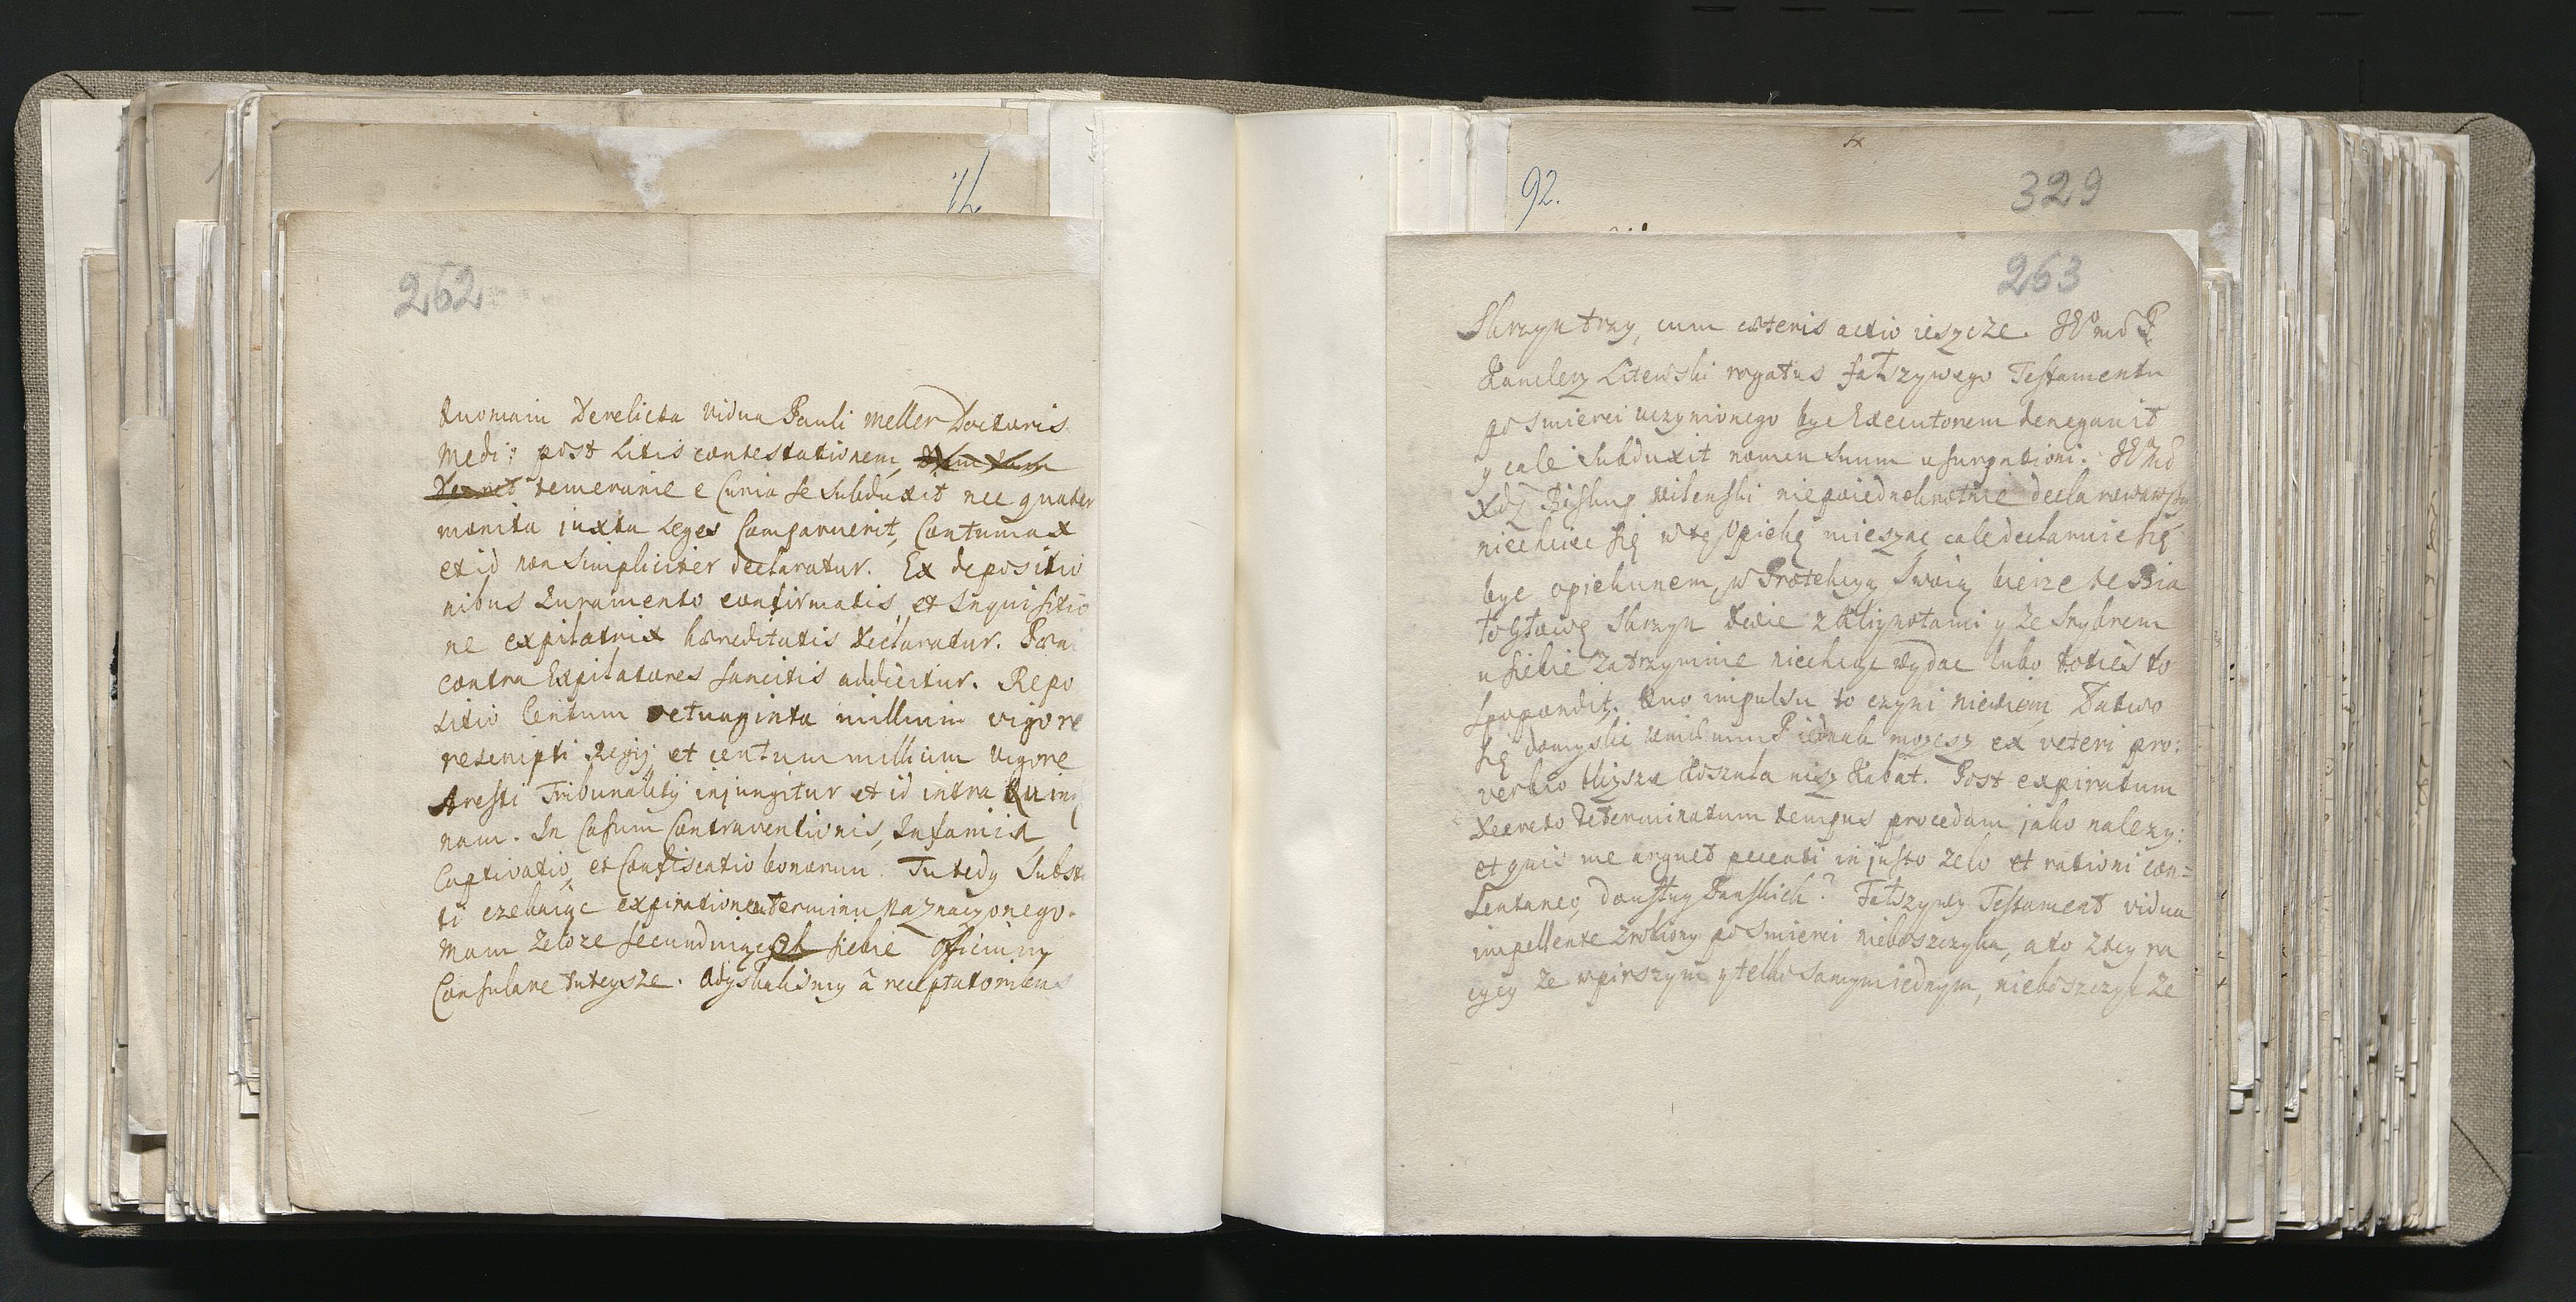 262
Quoniam Derelicta vidua Pauli Meller Doctoris
Medi: post Litis contestationem,
temerarie e Curia se subduxit nec quater
monita juxta Leges Comparuerit, Contumax
et id non simpliciter declaratur. Ex depositio
nibus Juramento confirmatis, et Inquisitio
ne expilatrix haereditatis declaratur. Poenis
contra Expilatores sancitis addicitur. Repo
sitio Centum octuaginta millium vigore
rescripti Regij et centum millium vigore
Aresti Tribunality injungitur et id intra Quin
nam. In Casum Contraventionis, Infamia
Captivatio, et Confiscatio bonorum. Tu tedy Subst
ti czekaiąc expirationem Terminu Naznaczonego.
Mam zeloze secunduiące siebie Officium
Consulare tuteysze. Odyskalismy â receptatoribus
12
92.
329
263
Skrzyn trzy, cum caeteris actio ieszcze. JWo md P
Kanclerz Litewski rogatus fałszywego Testamentu
po smierci uczynionego byc Executorem denegauit
y cale subduxit nomen suum usurpationi. JWo md
Xdz Biskup wilenski niepoiednokrotnie declarowawszy
niechciec się w tę Opiekę mieszac cale declaruie się
byc opiekunem, w Protekcyą Swoią bierze te Bia
togłowę Skrzyn dwie z Kleynotami y ze Srybrem
u siebie zatrzymuie niechcąc wydac lubo toties to
spopondit. Quo impulsu to czyni niewiem Łatwo
się domyslic iednak mozesz ex veteri pro:
verbio blizsza Koszula nisz Kabat. Post expiratum
Decreto Determinatum tempus procedam jako nalezy:
et quis me arguet peccati in justo zelo et rationi con=
sentaneo, dousług Panskich? Fałszywy Testament vidua
impellente zrobiony po smierci nieboszczyka, a to z tey ra
cyey ze w pirszym y telko samym iednym, nieboszczyk ze